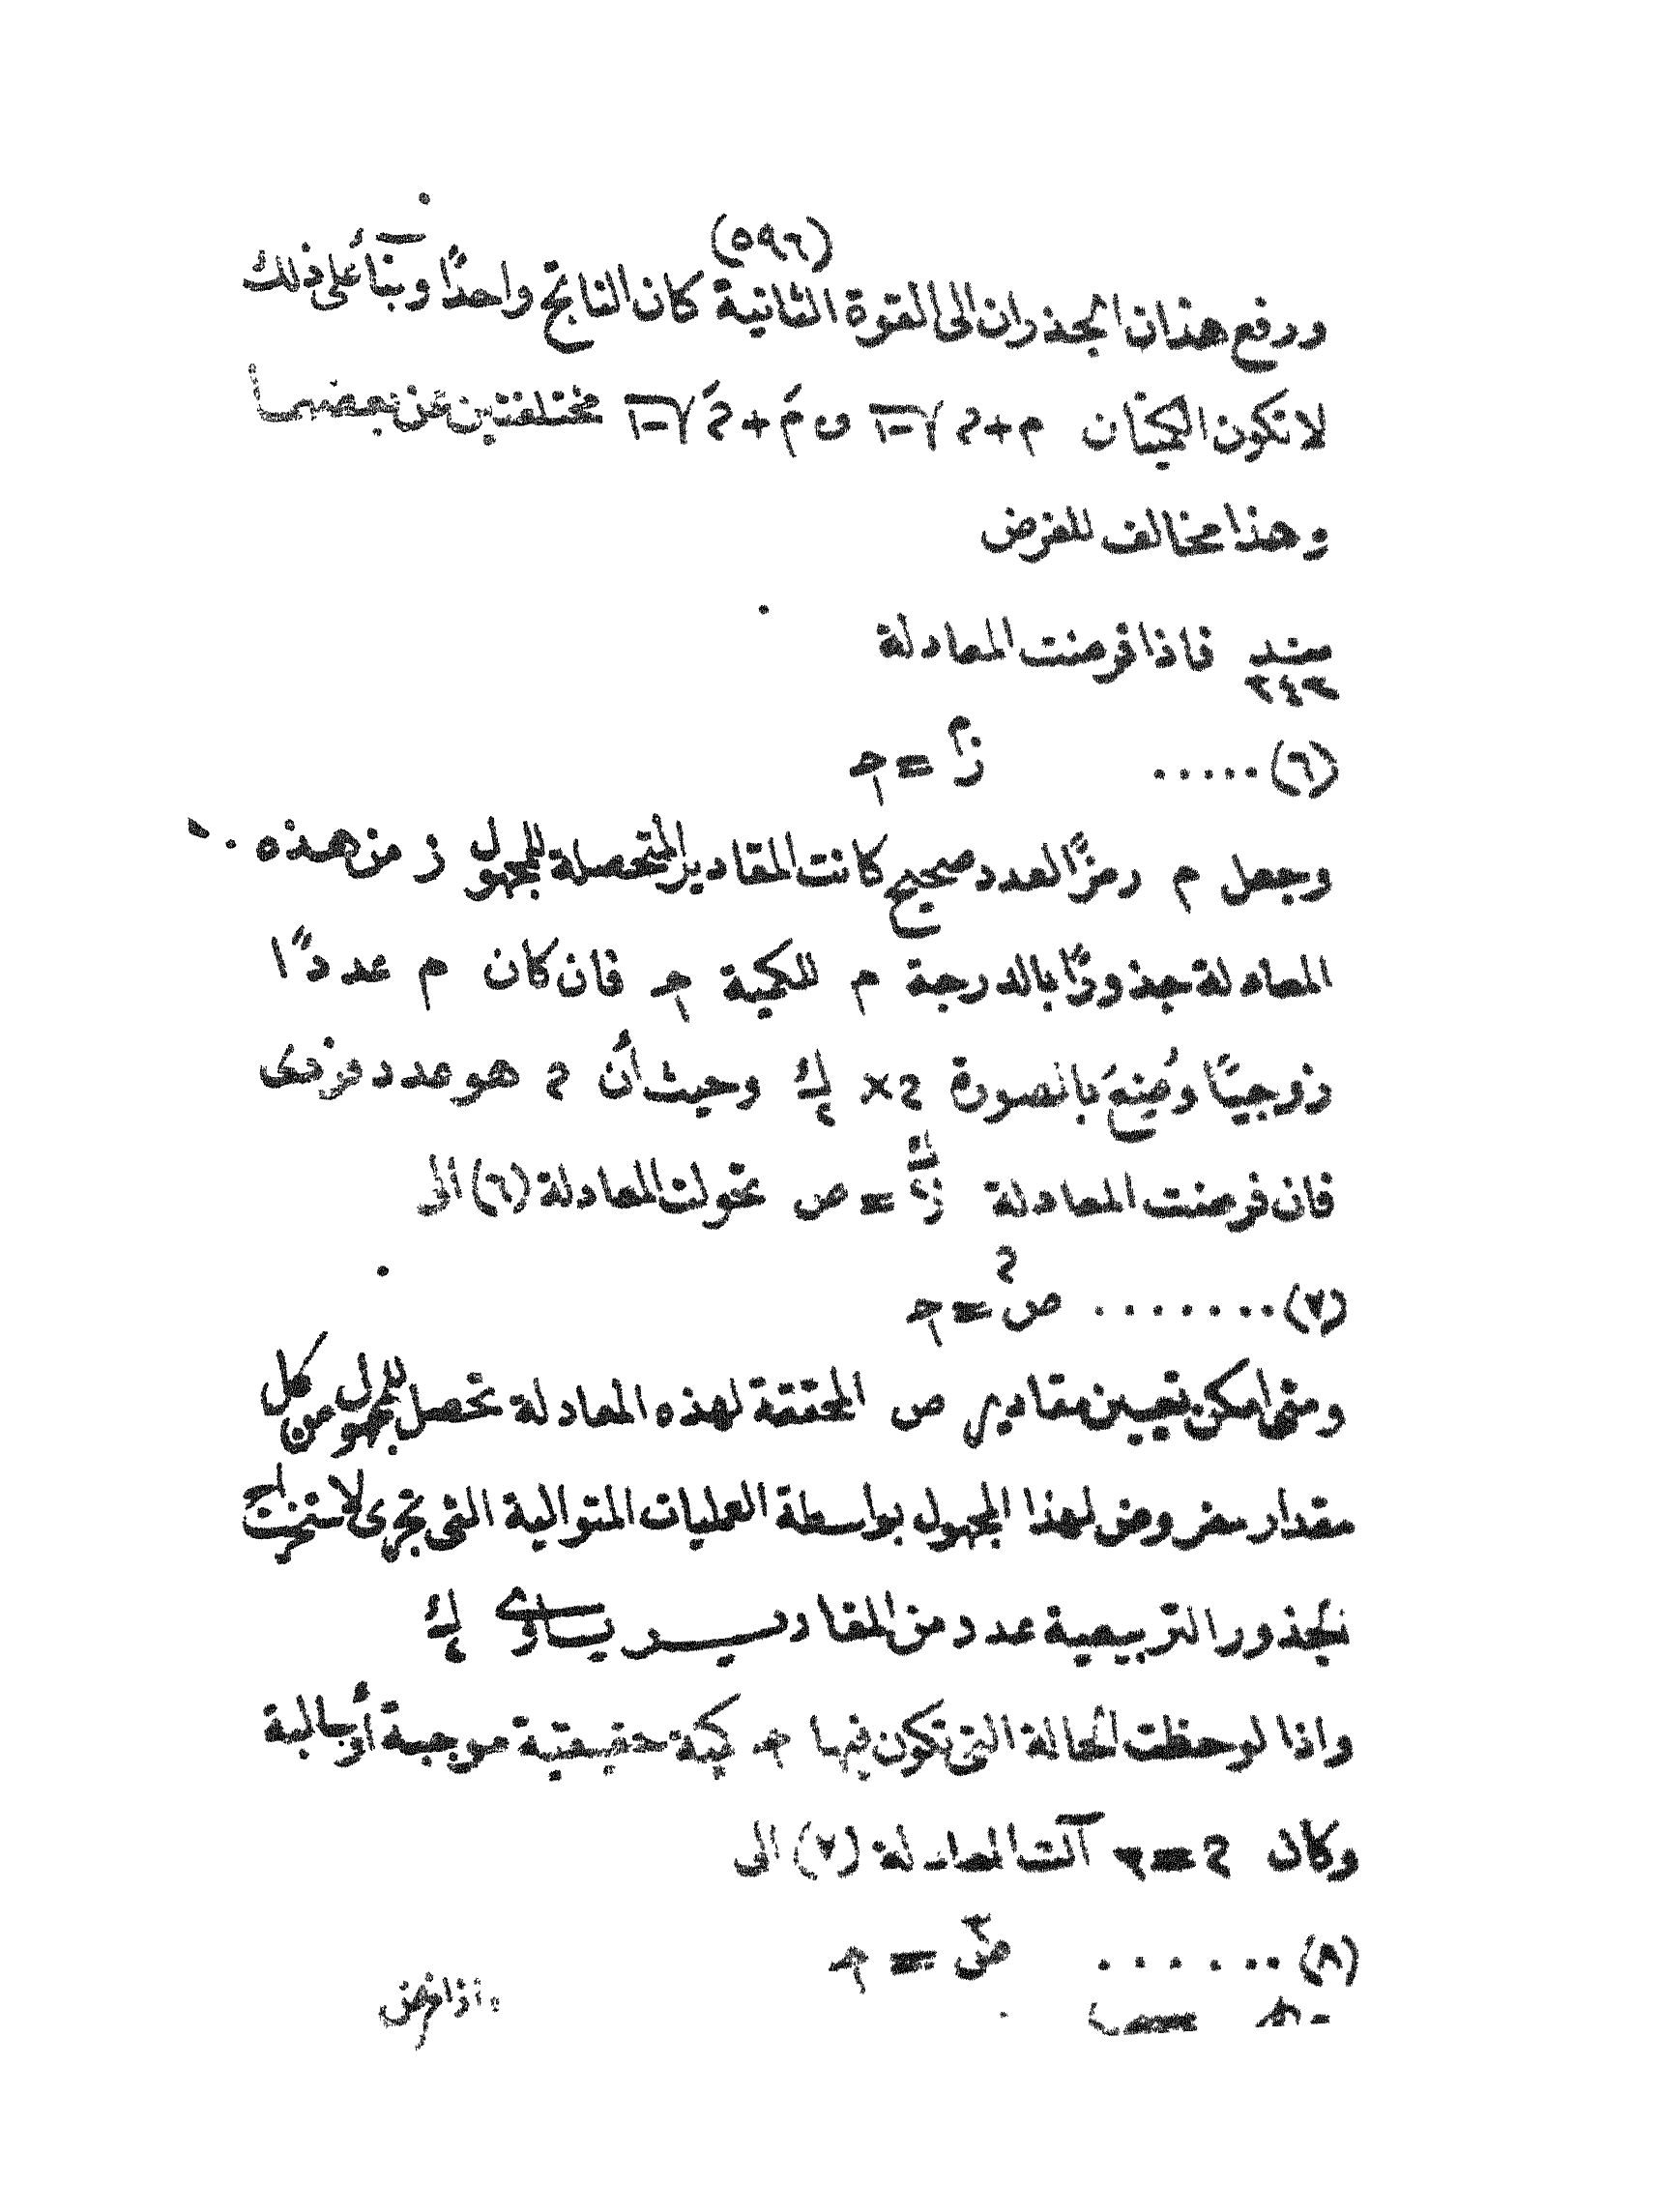 (٥٩٦)
ورفع هذان الجذران الى القوة الثانية كان الناتج واحدًا وبنأ على ذلك
لا تكون الكميتان م+ﺣ √-١ و مَ+ﺣَ √-١ مختلفتين عن بعضهما
وهذا مخالف للفرض
سند ٢٤٣ فاذا فرضت المعادلة
(٦) ..... زم = ﺟ
وجعل م رمزًا لعدد صحيح كانت المقادير المتحصلة للمجهول ز من هذه
المعادلة جذورًا بالدرجة م للكمية ﺟ فان كان م عددًا
زوجيًا وضِعَ بالصورة ﺣ×٢ك وحيث أن ﺣ هو عدد فردى
فان فرضت المعادلة ز٢ك = ص تحولت المعادلة (٦) الى
(٧) ....... صﺣ = ﺟ
ومتى امكن تعيين مقادير ص المحققة لهذه المعادلة تحصل للمجهول من كل
مقدار مفروض لهذا المجهول بواسطة العمليات المتوالية التى تجرى لاستخراج
الجذور التربيعية عدد من المقادير يساوى ٢ك
واذا لوحظت الحالة التى تكون فيها ﺟ كمية حقيقية موجبة أوسالبة
وكان ﺣ = ٣ آلت المعادلة (٧) الى
(٨) ...... ص٣ = ﺟ
اذا فرض